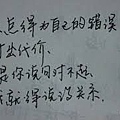 总得为自己的错误
付出代价.
是你说句对不起
就得说没关系.